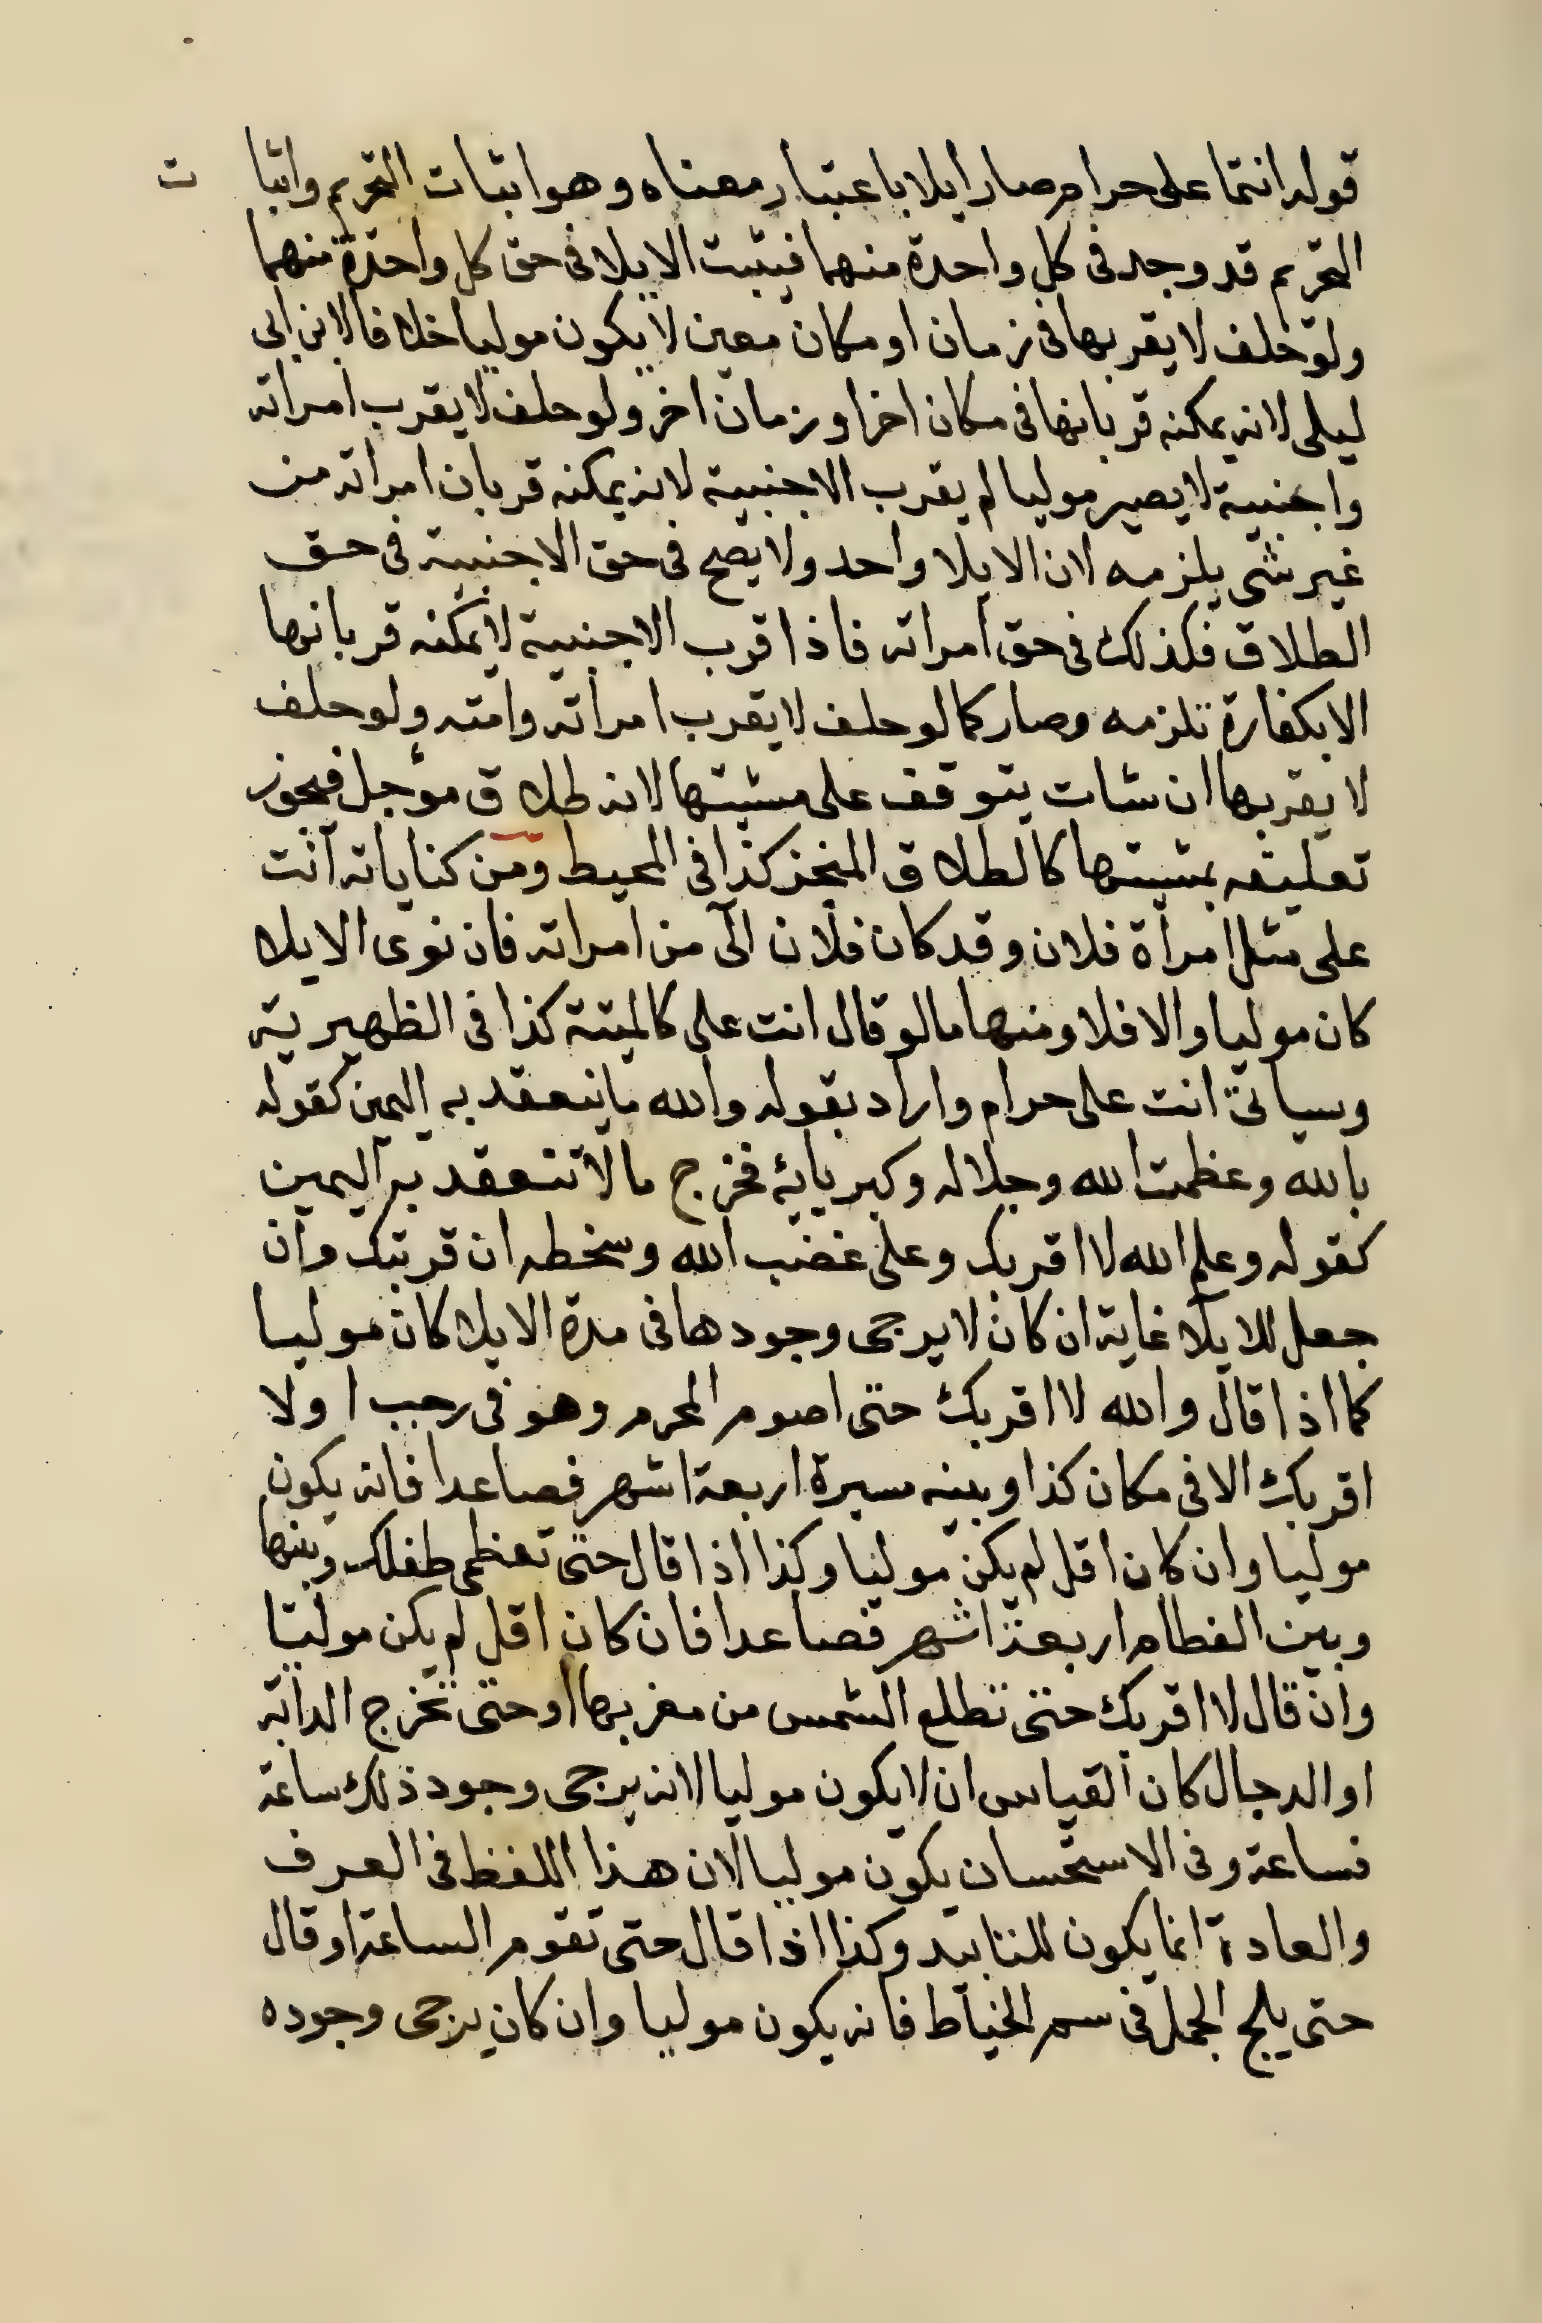 قوله انتما على حرام صار ايلا باعتبار معناه وهو اثبات التحريم واثبات
التحريم قد وجد فى كل واحدة منهما فيثبت الايلا فى حق كل واحدة منهما
ولو حلف لا يقربها فى زمان او مكان معين لا يكون موليا خلافا لابن ابى
ليلى لانه يمكنه قربانها فى مكان اخر او زمان اخر ولو حلف لا يقرب امراته
واجنبية لا يصير موليا لم يقرب الاجنبية لانه يمكنه قربان امراته من
غير شى يلزمه لان الايلا واحد ولا يصح فى حق الاجنبية فى حق
الطلاق فكذلك فى حق امراته فاذا قرب الاجنبية لا يمكنه قربانها
الا بكفارة تلزمه وصار كما لو حلف لا يقرب امراته وامته ولو حلف
لا يقربها ان شات يتوقف على مشيتها لانه طلاق مؤجل فيجوز
تعليقه بمشيتها كالطلاق المنجز كذا فى المحيط ومن كناياته انت
على مثل امرأة فلان وقد كان فلان الى من امراته فان نوى الايلا
كان موليا والا فلا ومنها ما لو قال انت على كالميتة كذا فى الظهيرية
وسياتى انت على حرام واراد بقوله والله ما ينعقد به اليمين كقوله
بالله وعظمت الله وجلاله وكبريايئه فخرج ما لا تنعقد به اليمين
كقوله وعلم الله لا اقربك وعلى غضب الله وسخطه ان قربتك وان
جعل للايلا غاية ان كان لا يرجى وجودها فى مدة الايلا كان موليا
كما اذا قال والله لا اقربك حتى اصوم المحرم وهو فى رجب او لا
اقربك الا فى مكان كذا وبينه مسيرة اربعة اشهر فصاعدا فانه يكون
موليا وان كان اقل لم يكن موليا وكذا اذا قال حتى تفطمى طفلك وبينها
وبين الفطام اربعة اشهر فصاعدا فان كان اقل لم يكن موليا
وان قال لا اقربك حتى تطلع الشمس من مغربها او حتى تخرج الدابة
او الدجال كان القياس ان لا يكون موليا لانه يرجى وجود ذلك ساعة
فساعة وفى الاستحسان يكون موليا لان هذا اللفظ فى العرف
والعادة انما يكون للتابيد وكذا اذا قال حتى تقوم الساعة او قال
حتى يلج الجمل فى سم الخياط فانه يكون موليا وان كان يرجى وجوده